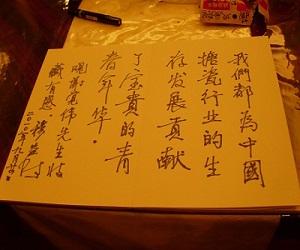 我們都為中國
搪瓷行业的生
存发展貢献
了宝貴的青
春年华。
先生收
藏有感